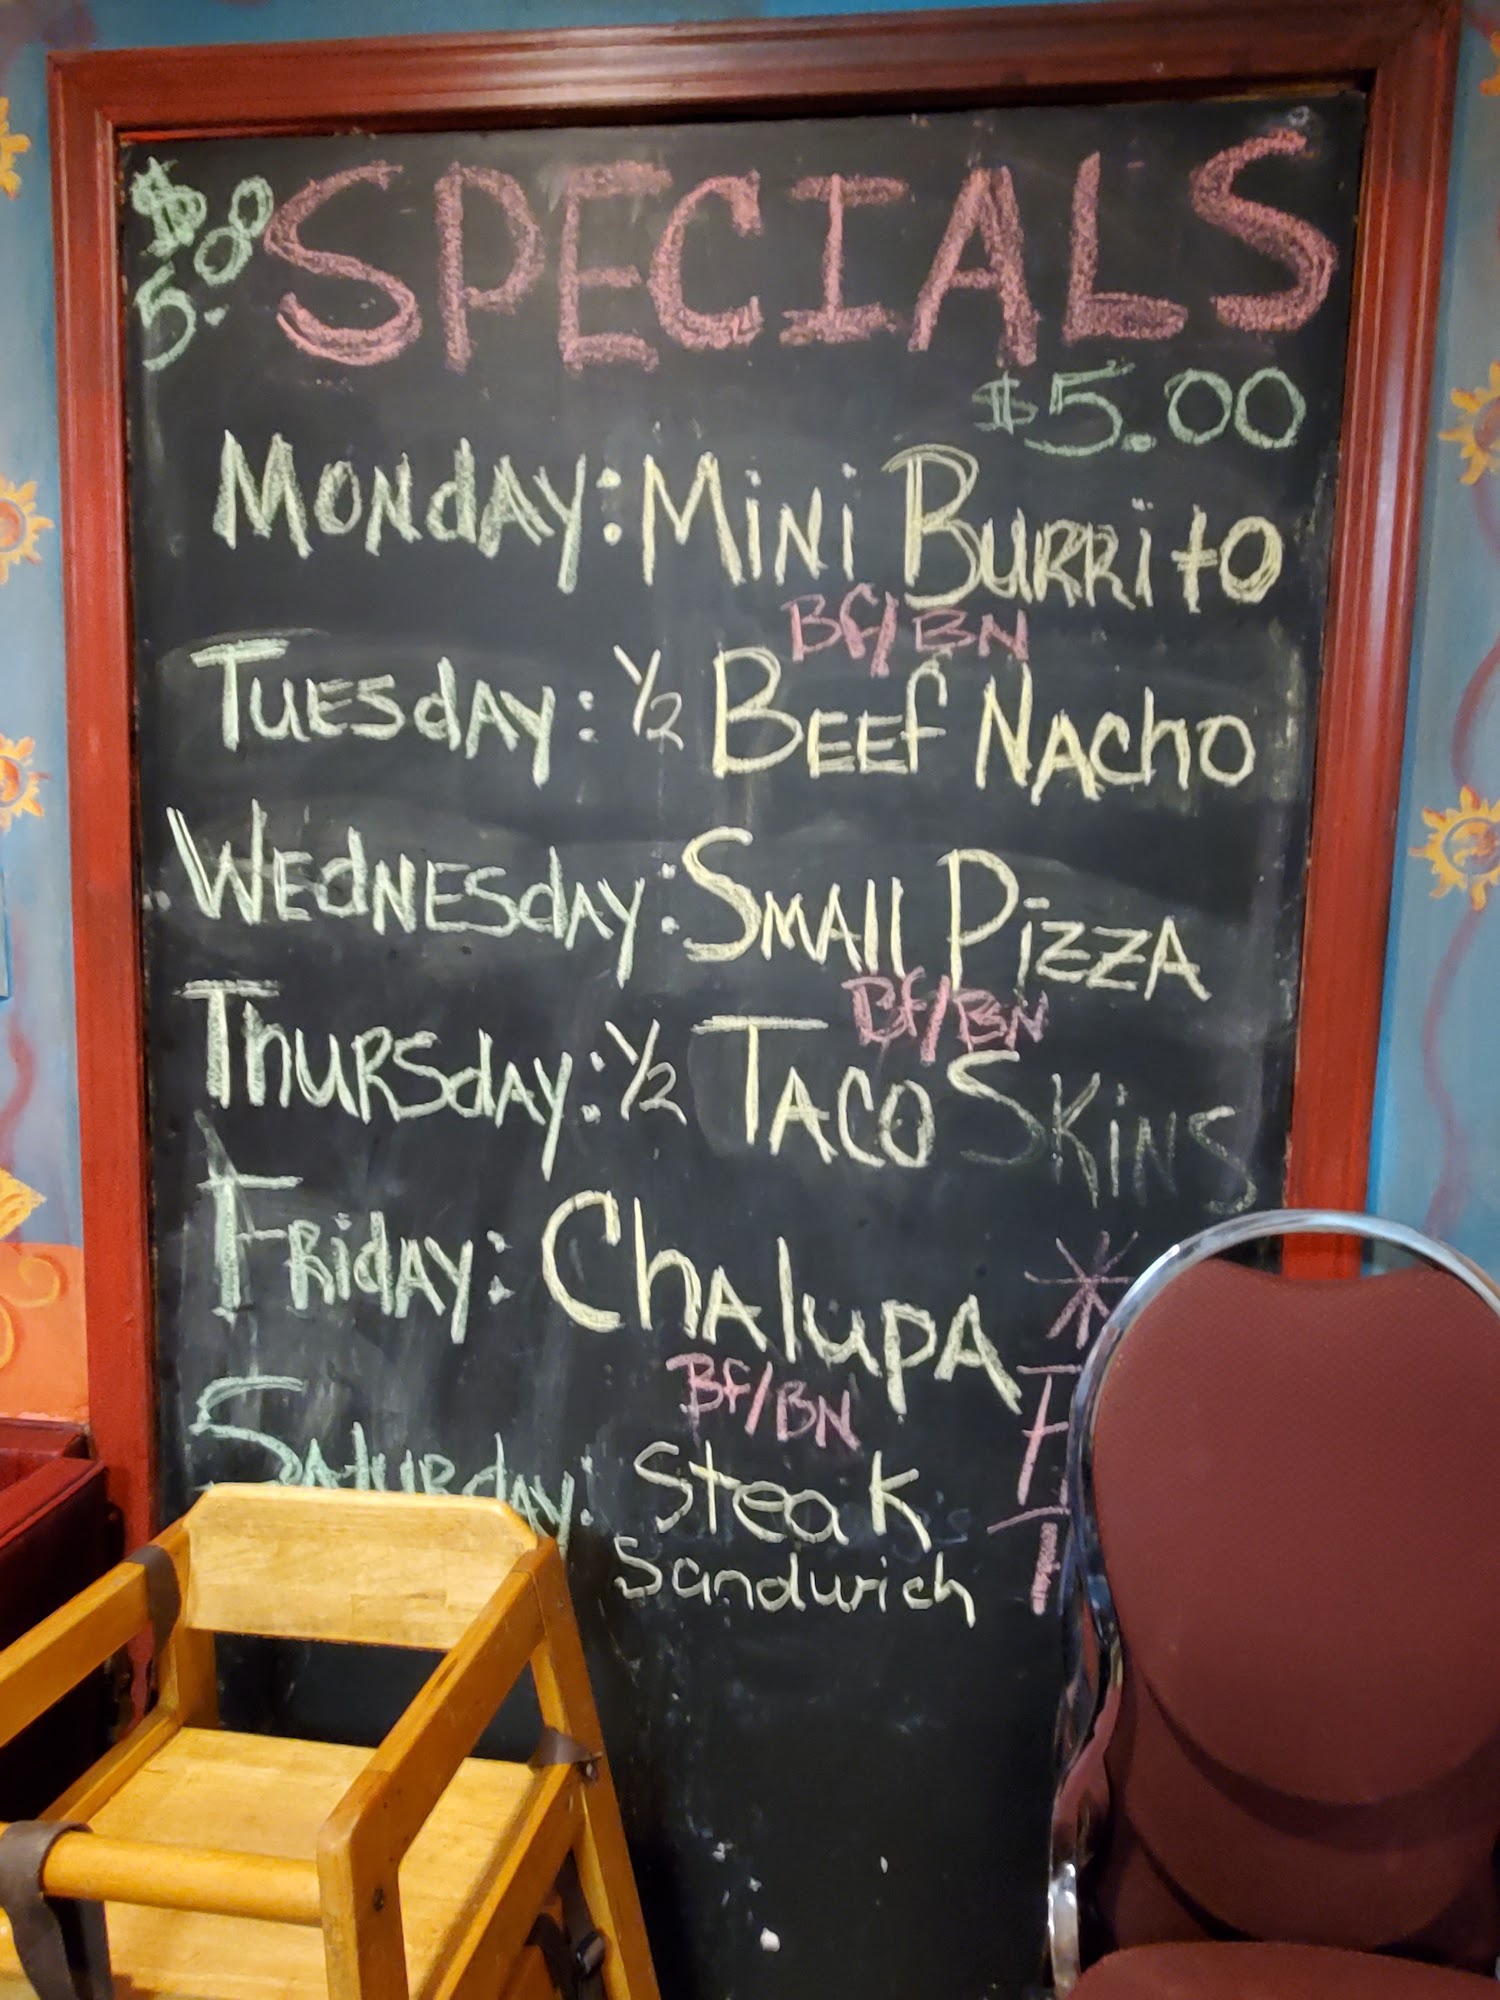 $5.00 SPECIALS
$5.00
Monday: Mini Burrito
Bf/BN
Tuesday: ½ Beef Nacho
Wednesday: Small Pizza
Bf/BN
Thursday: ½ Taco Skins
Friday: Chalupa *
Bf/BN
Saturday: Steak
Sandwich